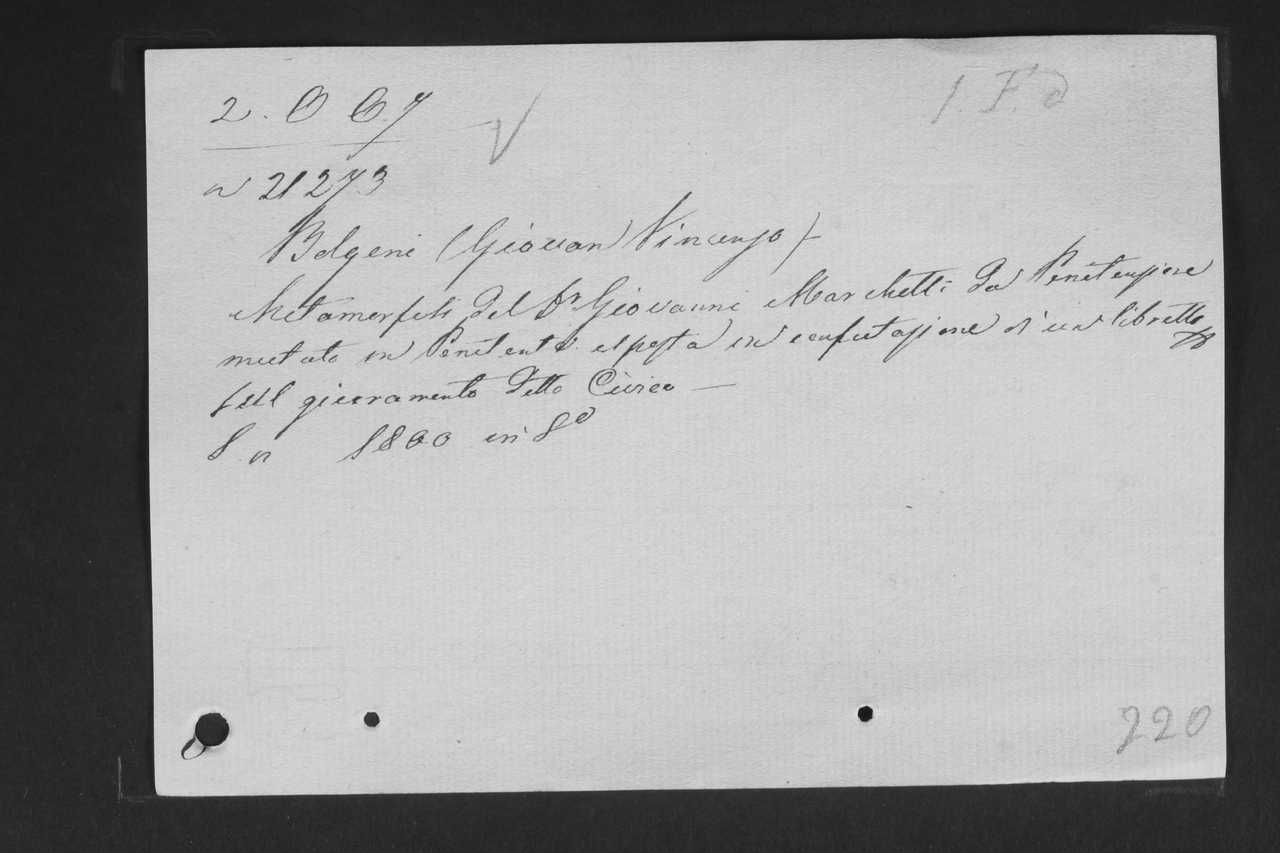 2. O 6. 7
1. F. d
n 21273
Bolgeni (Giovan Vincenzo)
Metamorfosi del Dr Giovanni Marchetti da Penitenziere
mutato in Penitente esposta in confutazione d'un libretto
sul giuramento detto Civico —
S n 1800 in 8º
220